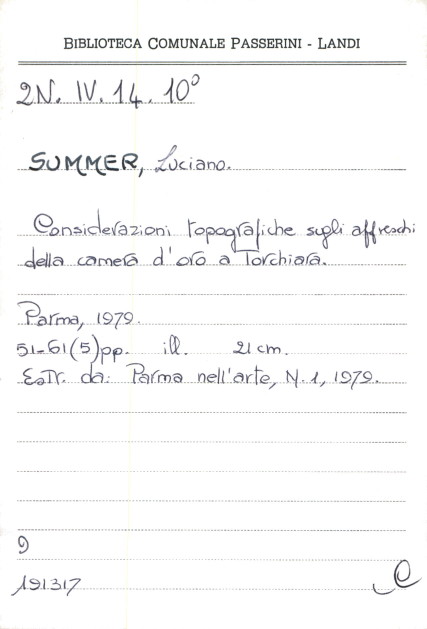 BIBLIOTECA COMUNALE PASSERINI - LANDI
2N. IV. 14. 10°
SUMMER, Luciano.
Considerazioni topografiche sugli affreschi
della camera d'oro a Torchiara.
Parma, 1979.
51-61(5)pp. ill. 21 cm.
Estr. da: Parma nell'arte, N. 1, 1979.
9
191317